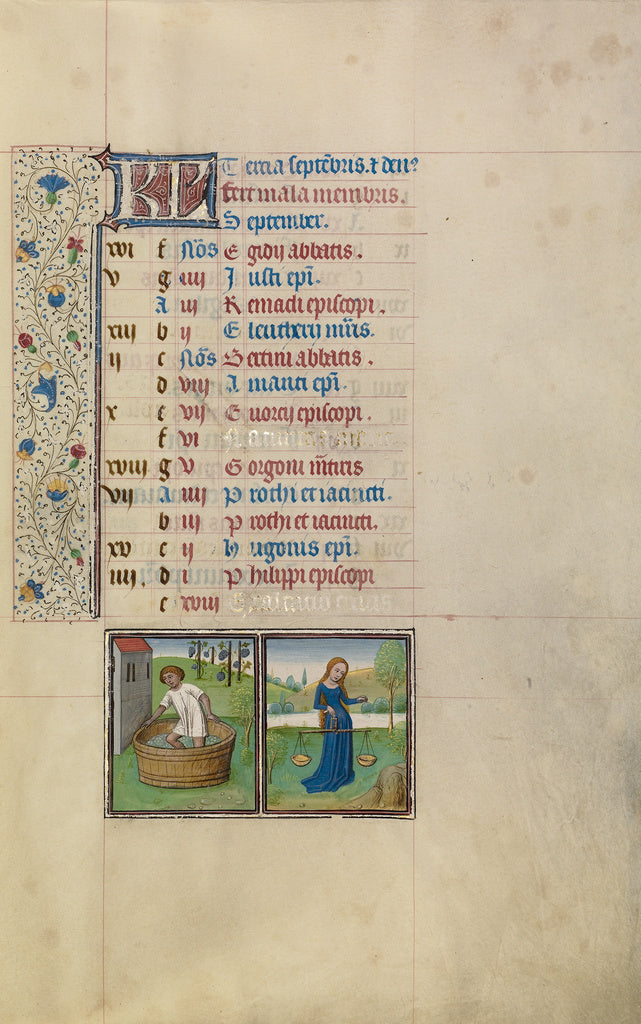 KL Tercia septēbris. ⁊ deñ?
fert mala membris.
September.
xvi f Nōs Egidij abbatis.
v g iiii Iusti epī.
A iii Remacli episcopi.
xiii b ii Eleutherij mr̄is.
ii c Nōs Bertini abbatis.
d viii Amanti epī.
x e vii Euorcij episcopi.
f vi
xviii g v Gorgoni m̄tiris
vii A iiii Prothi et iacincti.
b iii Prothi et iacincti.
xv c ii Hugonis epī.
iiii. d i Philippi episcopi
e xviii Exaltatio crucis